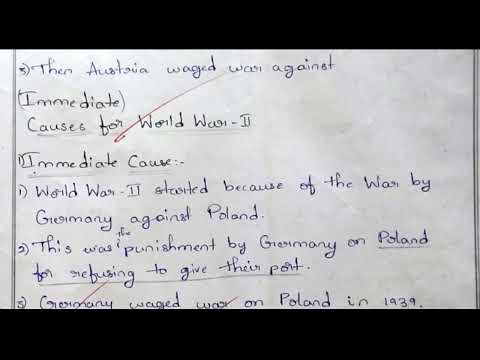 3) Then Austria waged war against
(Immediate)
Causes for World War-II
1) Immediate Cause:-
1) World War-II started because of the War by
Germany against Poland.
2) This was the punishment by Germany on Poland
for refusing to give their port.
3) Germany waged war on Poland in 1939.